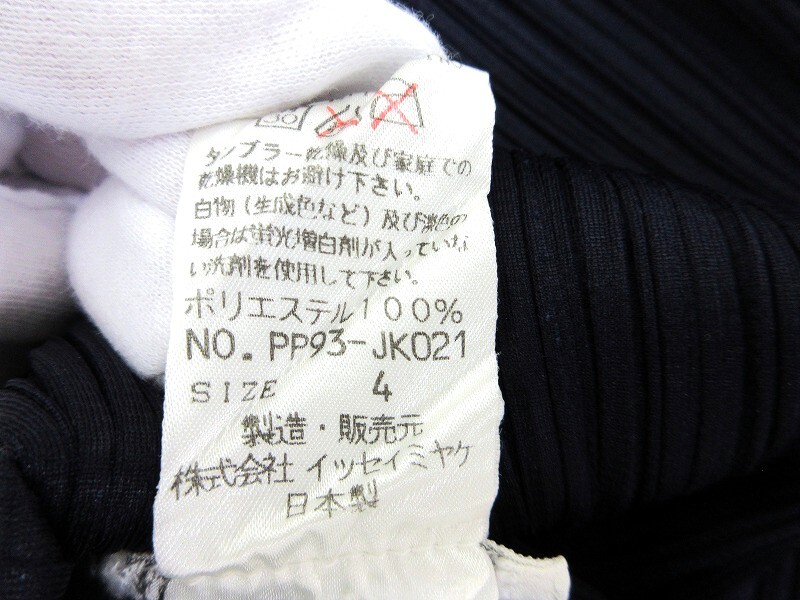 30
タンブラー乾燥及び家庭での
乾燥機はお避け下さい。
白物（生成色など）及び淡色の
場合は蛍光増白剤が入っていな
い洗剤を使用して下さい。
ポリエステル100%
NO. PP93-JK021
SIZE 4
製造・販売元
株式会社 イッセイミヤケ
日本製